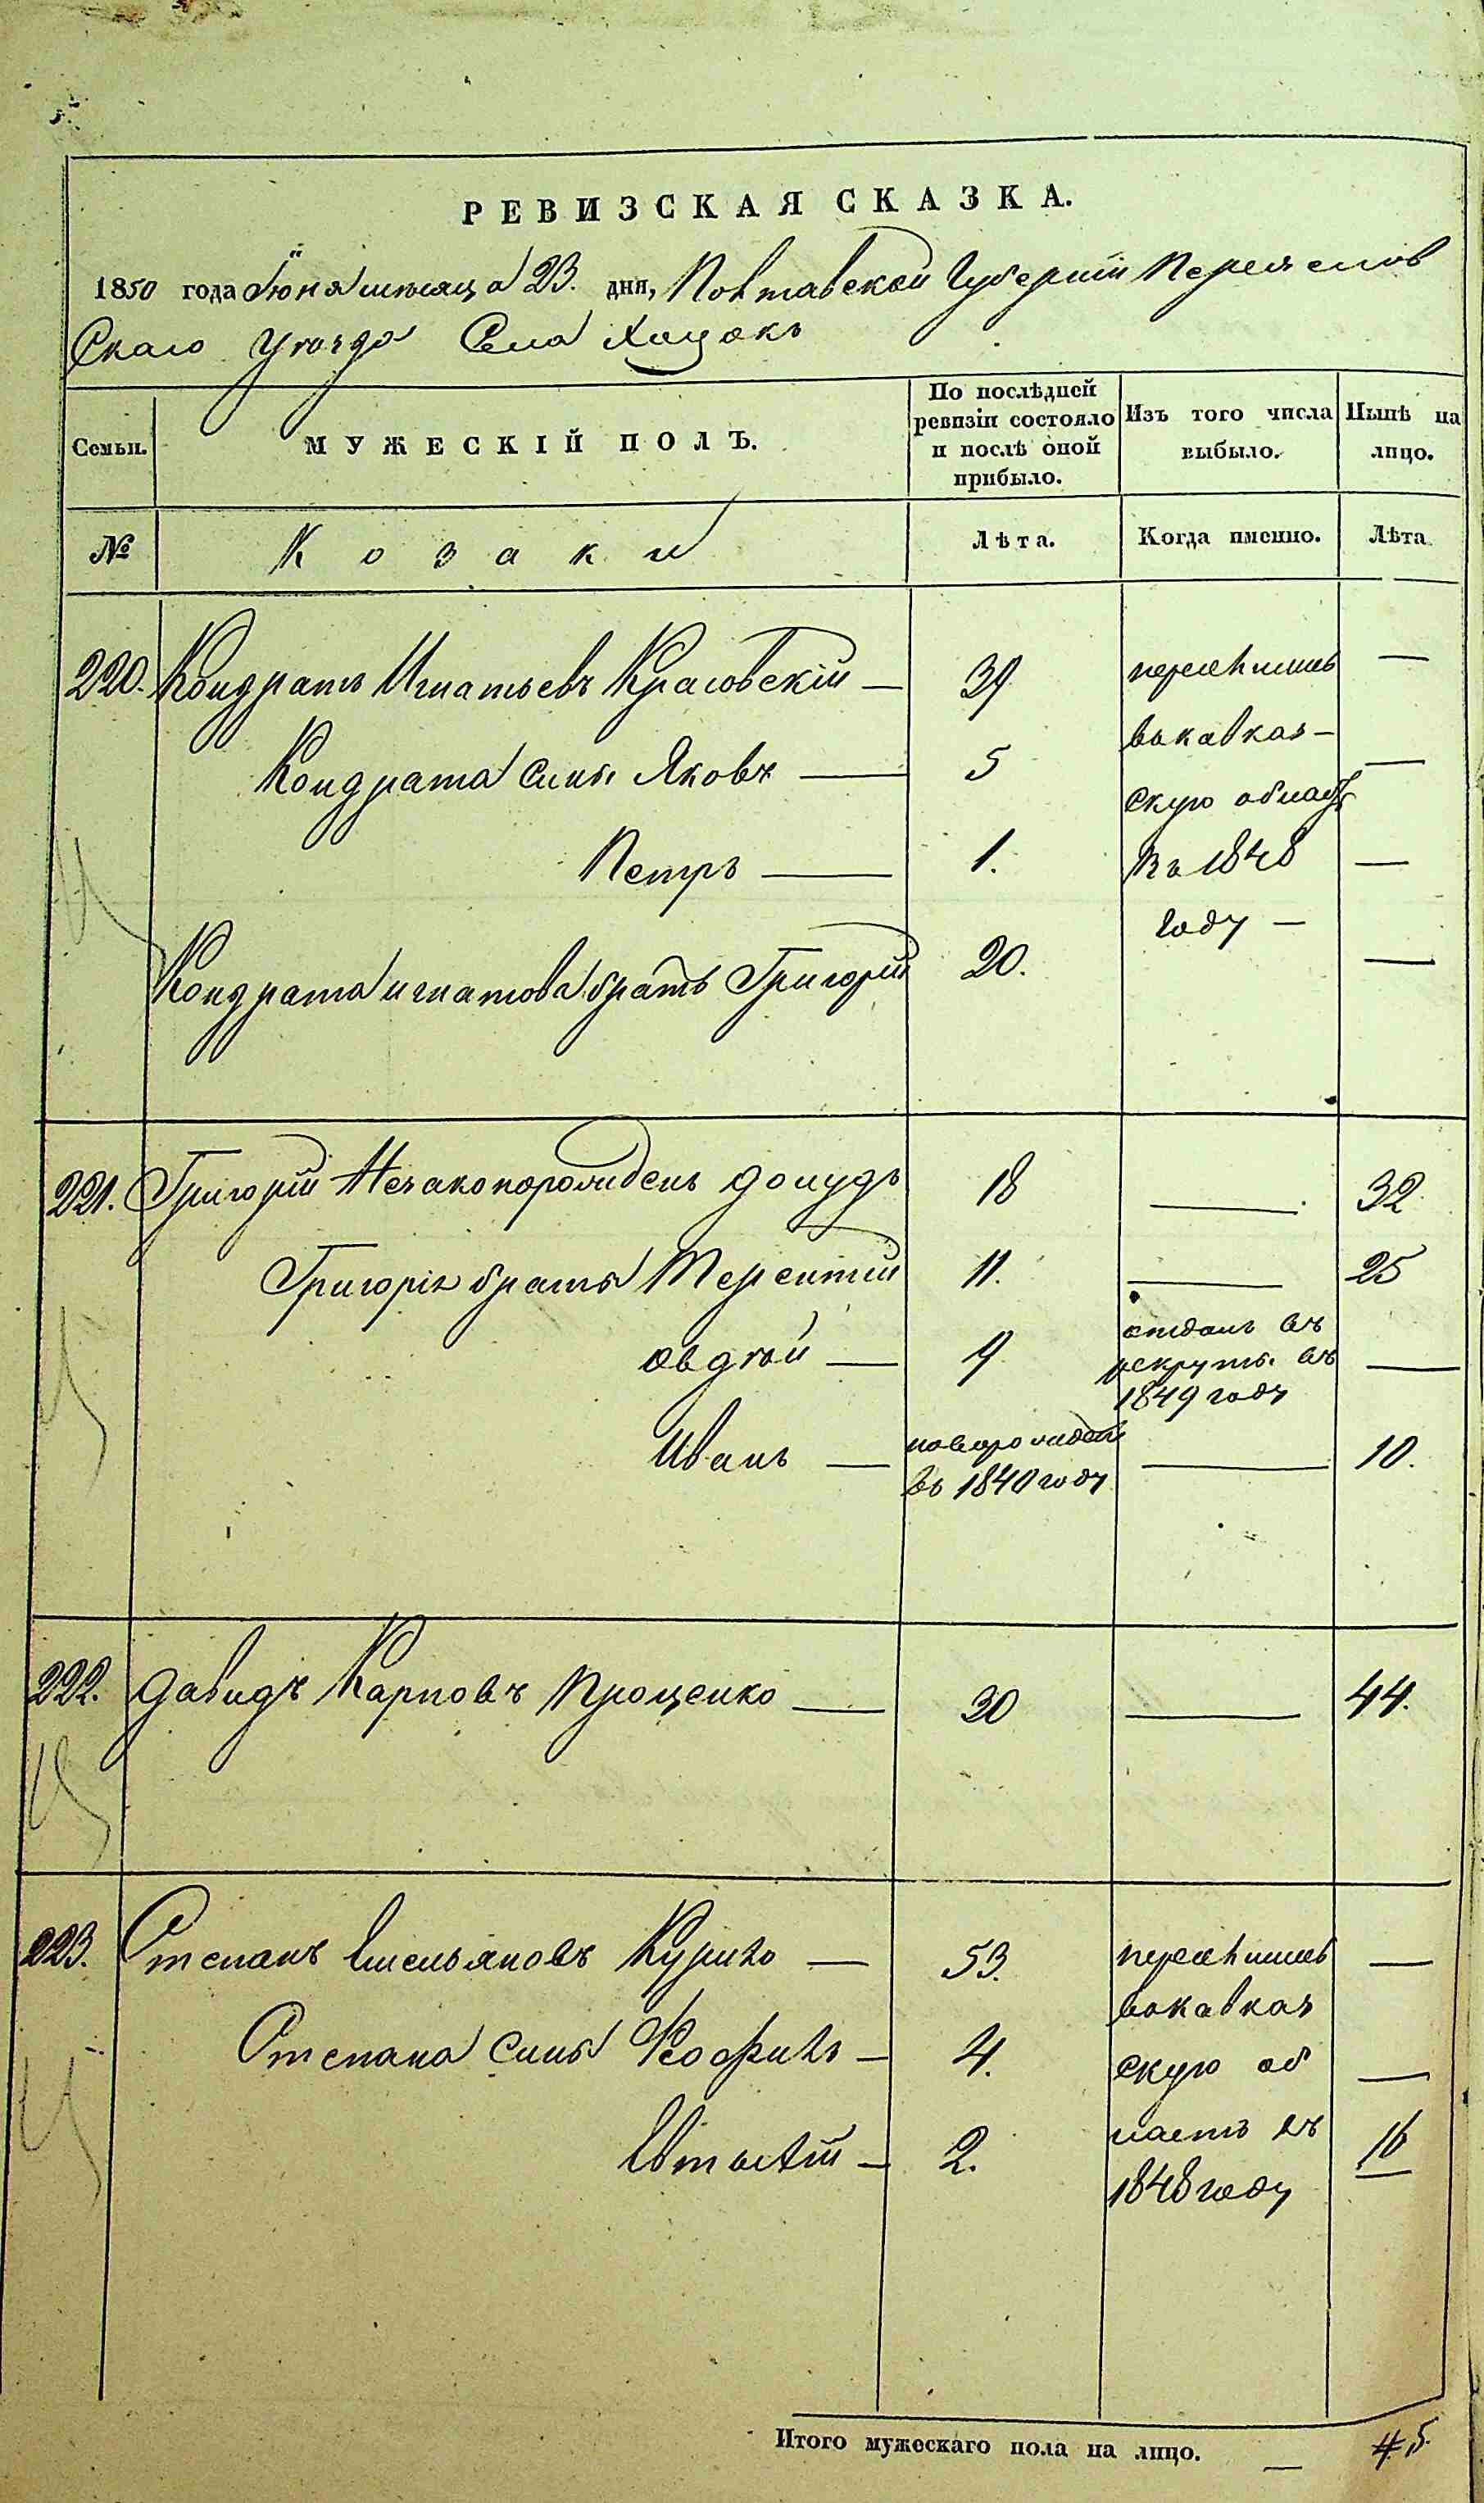 РЕВИЗСКАЯ СКАЗКА.
1850 года Іюня месяца 23. дня, Полтавской Губерніи Переяслов
Скаго Уѣзда Села Хоцокъ
Семьи. МУЖЕСКІЙ ПОЛЪ. По послѣдней ревизіи состояло и послѣ оной прибыло. Изъ того числа выбыло. Нынѣ на лицо.
№ Козаки Лѣта. Когда именно. Лѣта
220. Кондратъ Игнатьевъ Красовскій — 39 переселились —
Кондрата сынъ Яковъ — 5 вкавказ- —
скую область
Петръ — 1. въ 1848 —
году —
Кондрата игнатова братъ Григорій 20. —
221. Григорій Незаконорожденъ донудъ 18 — 32
Григорія братья Терентій 11. — 25
овдѣй — 9 отданъ въ рекруты въ 1849 году —
Иванъ — новорожденъ въ 1840 году — 10.
222. Давидъ Карповъ Проценко — 30 — 44.
223. Степанъ Емельяновъ Курило — 53. переселились —
вокавказ
Степана сынъ Феофилъ — 4. скую об —
ласть въ
Евтихій — 2. 16
1848 году
Итого мужескаго пола на лицо. — # 5.